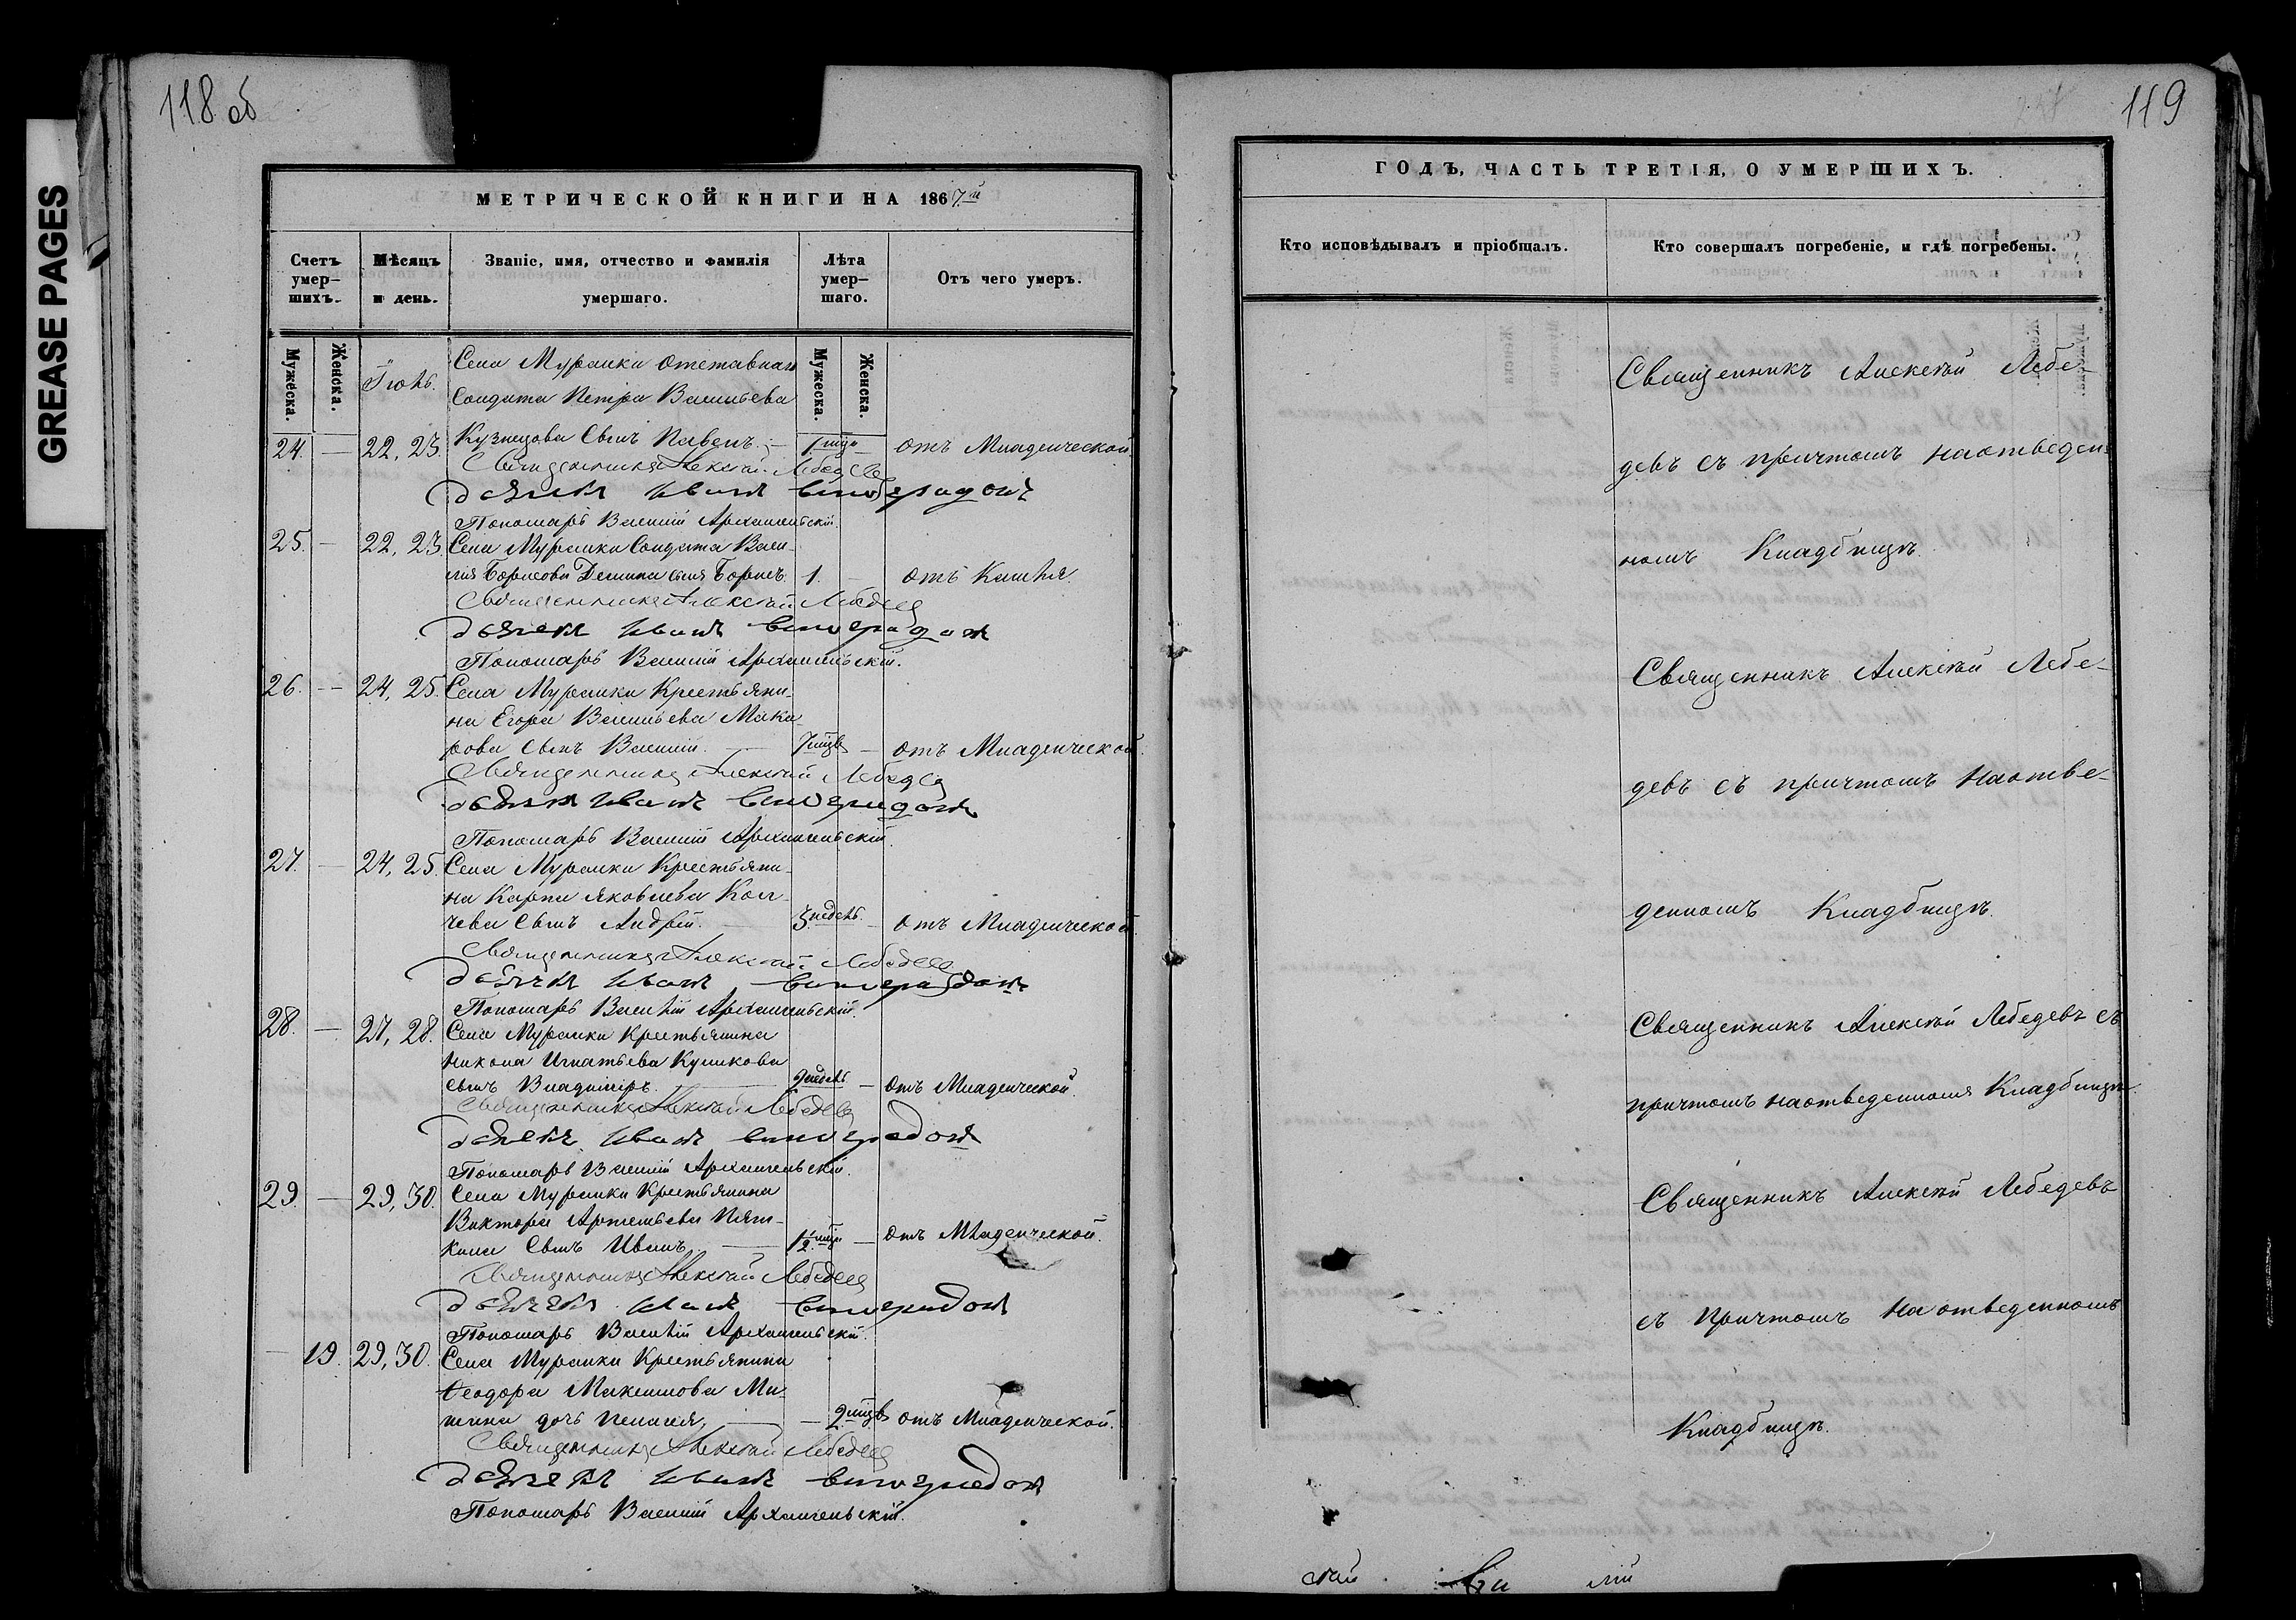 GREASE PAGES
118 об
МЕТРИЧЕСКОЙ КНИГИ НА 1867й
Счетъ умер-шихъ.
Мѣсяцъ и день.
Званіе, имя, отчество и фамилія умершаго.
Лѣта умер-шаго.
Отъ чего умеръ.
Мужеска.
Женска.
Іюль.
Мужеска.
Женска.
Села Муранки отставнаго
Солдата Петра Васильева
24. — 22, 23. Кузнецова сынъ Павелъ. — 1 — отъ Младенческой
Священникъ Алексѣй Лебедевъ
дьячекъ Иванъ Виноградовъ
Пономарь Василій Архангельскій.
25. — 22, 23 Села Муранки Солдата Васи-
лія Борисова Демина сынъ Борисъ. 1. — отъ Кашля.
Священникъ Алексѣй Лебедевъ
дьячекъ Иванъ Виноградовъ
Пономарь Василій Архангельскій.
26. — 24, 25. Села Муранки Крестьяни-
на Егора Васильева Мака-
рова сынъ Василій. — 7 мцвъ — отъ Младенческой.
Священникъ Алексѣй Лебедевъ
дьячекъ Иванъ Виноградовъ
Пономарь Василій Архангельскій.
27. — 24, 25. Села Муранки Крестьяни-
на Карпа Яковлева
чева сынъ Андрей. — 3 недѣль. — отъ Младенческой
Священникъ Алексѣй Лебедевъ
дьячекъ Иванъ Виноградовъ
Пономарь Василій Архангельскій.
28. — 27, 28. Села Муранки Крестьянина
Никона Игнатьева Куликова
сынъ Владиміръ. — 2 недѣль — отъ Младенческой.
Священникъ Алексѣй Лебедевъ
дьячекъ Иванъ Виноградовъ
Пономарь Василій Архангельскій.
29. — 29, 30. Села Муранки Крестьянина
Виктора Артемьева Пят-
кина сынъ Иванъ — 1½ — отъ Младенческой.
Священникъ Алексѣй Лебедевъ
дьячекъ Иванъ Виноградовъ
Пономарь Василій Архангельскій.
— 19. 29, 30. Села Муранки Крестьянина
Ѳеодора Максимова Ми-
тина дочь Пелагея, — — 2 мцвъ отъ Младенческой.
Священникъ Алексѣй Лебедевъ
дьячекъ Иванъ Виноградовъ
Пономарь Василій Архангельскій.
119
ГОДЪ, ЧАСТЬ ТРЕТІЯ, О УМЕРШИХЪ.
Кто исповѣдывалъ и пріобщалъ.
Кто совершалъ погребеніе, и гдѣ погребены.
Священникъ Алексѣй Лебе-
девъ съ причтомъ на отведен-
номъ Кладбищѣ.
Священникъ Алексѣй Лебе-
девъ съ причтомъ на отве-
денномъ Кладбищѣ.
Священникъ Алексѣй Лебедевъ съ
причтомъ на отведенномъ Кладбищѣ.
Священникъ Алексѣй Лебедевъ
съ причтомъ на отведенномъ
Кладбищѣ.